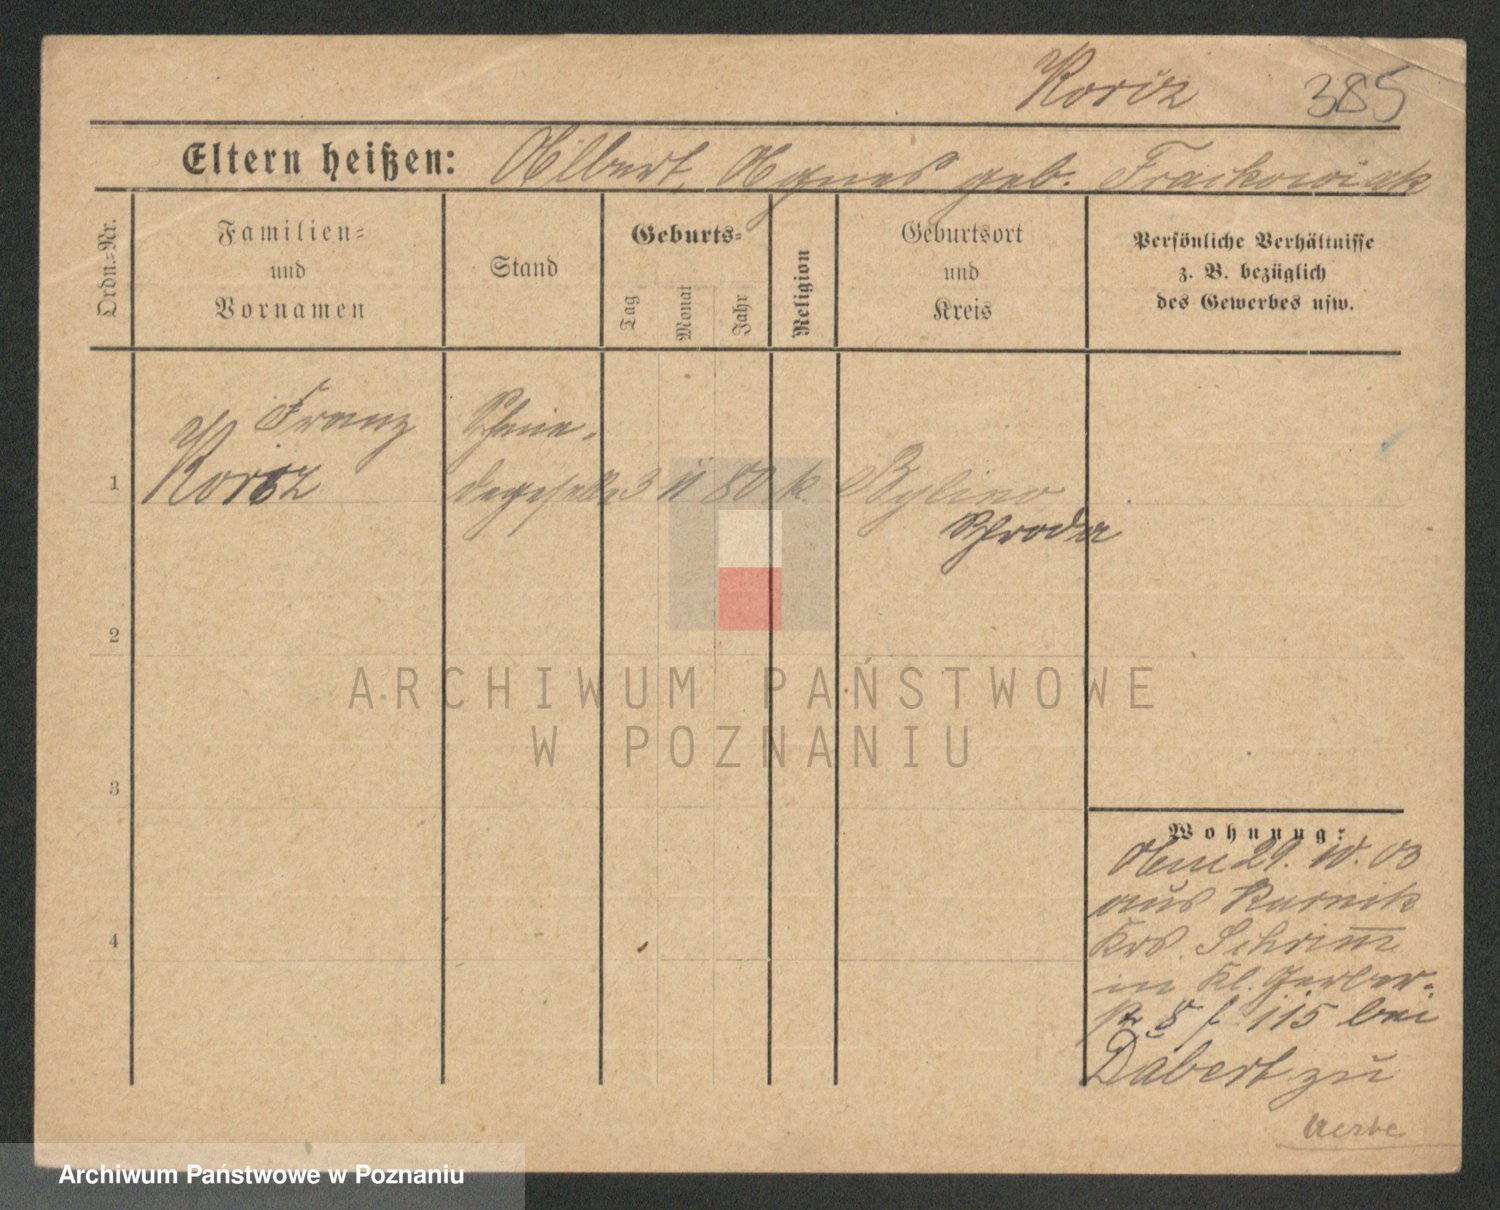 Koricz 385
Eltern heißen: Albert, Agnes geb. Frackowiak
Ordn.=Nr.
Familien=
und
Vornamen
Stand
Geburts=
Tag
Monat
Jahr
Religion
Geburtsort
und
Kreis
Persönliche Verhältnisse
z. B. bezüglich
des Gewerbes usw.
Franz Schmie-
1 degeselle 3 11 80 k.
Schroda
2
3
4
Wohnung:
29. 10. 03
aus Kurnik
Krs. Schrimm
in Kl. Gerber-
str 8 115 bei
Dabert zu
ARCHIWUM PAŃSTWOWE
W POZNANIU
Archiwum Państwowe w Poznaniu